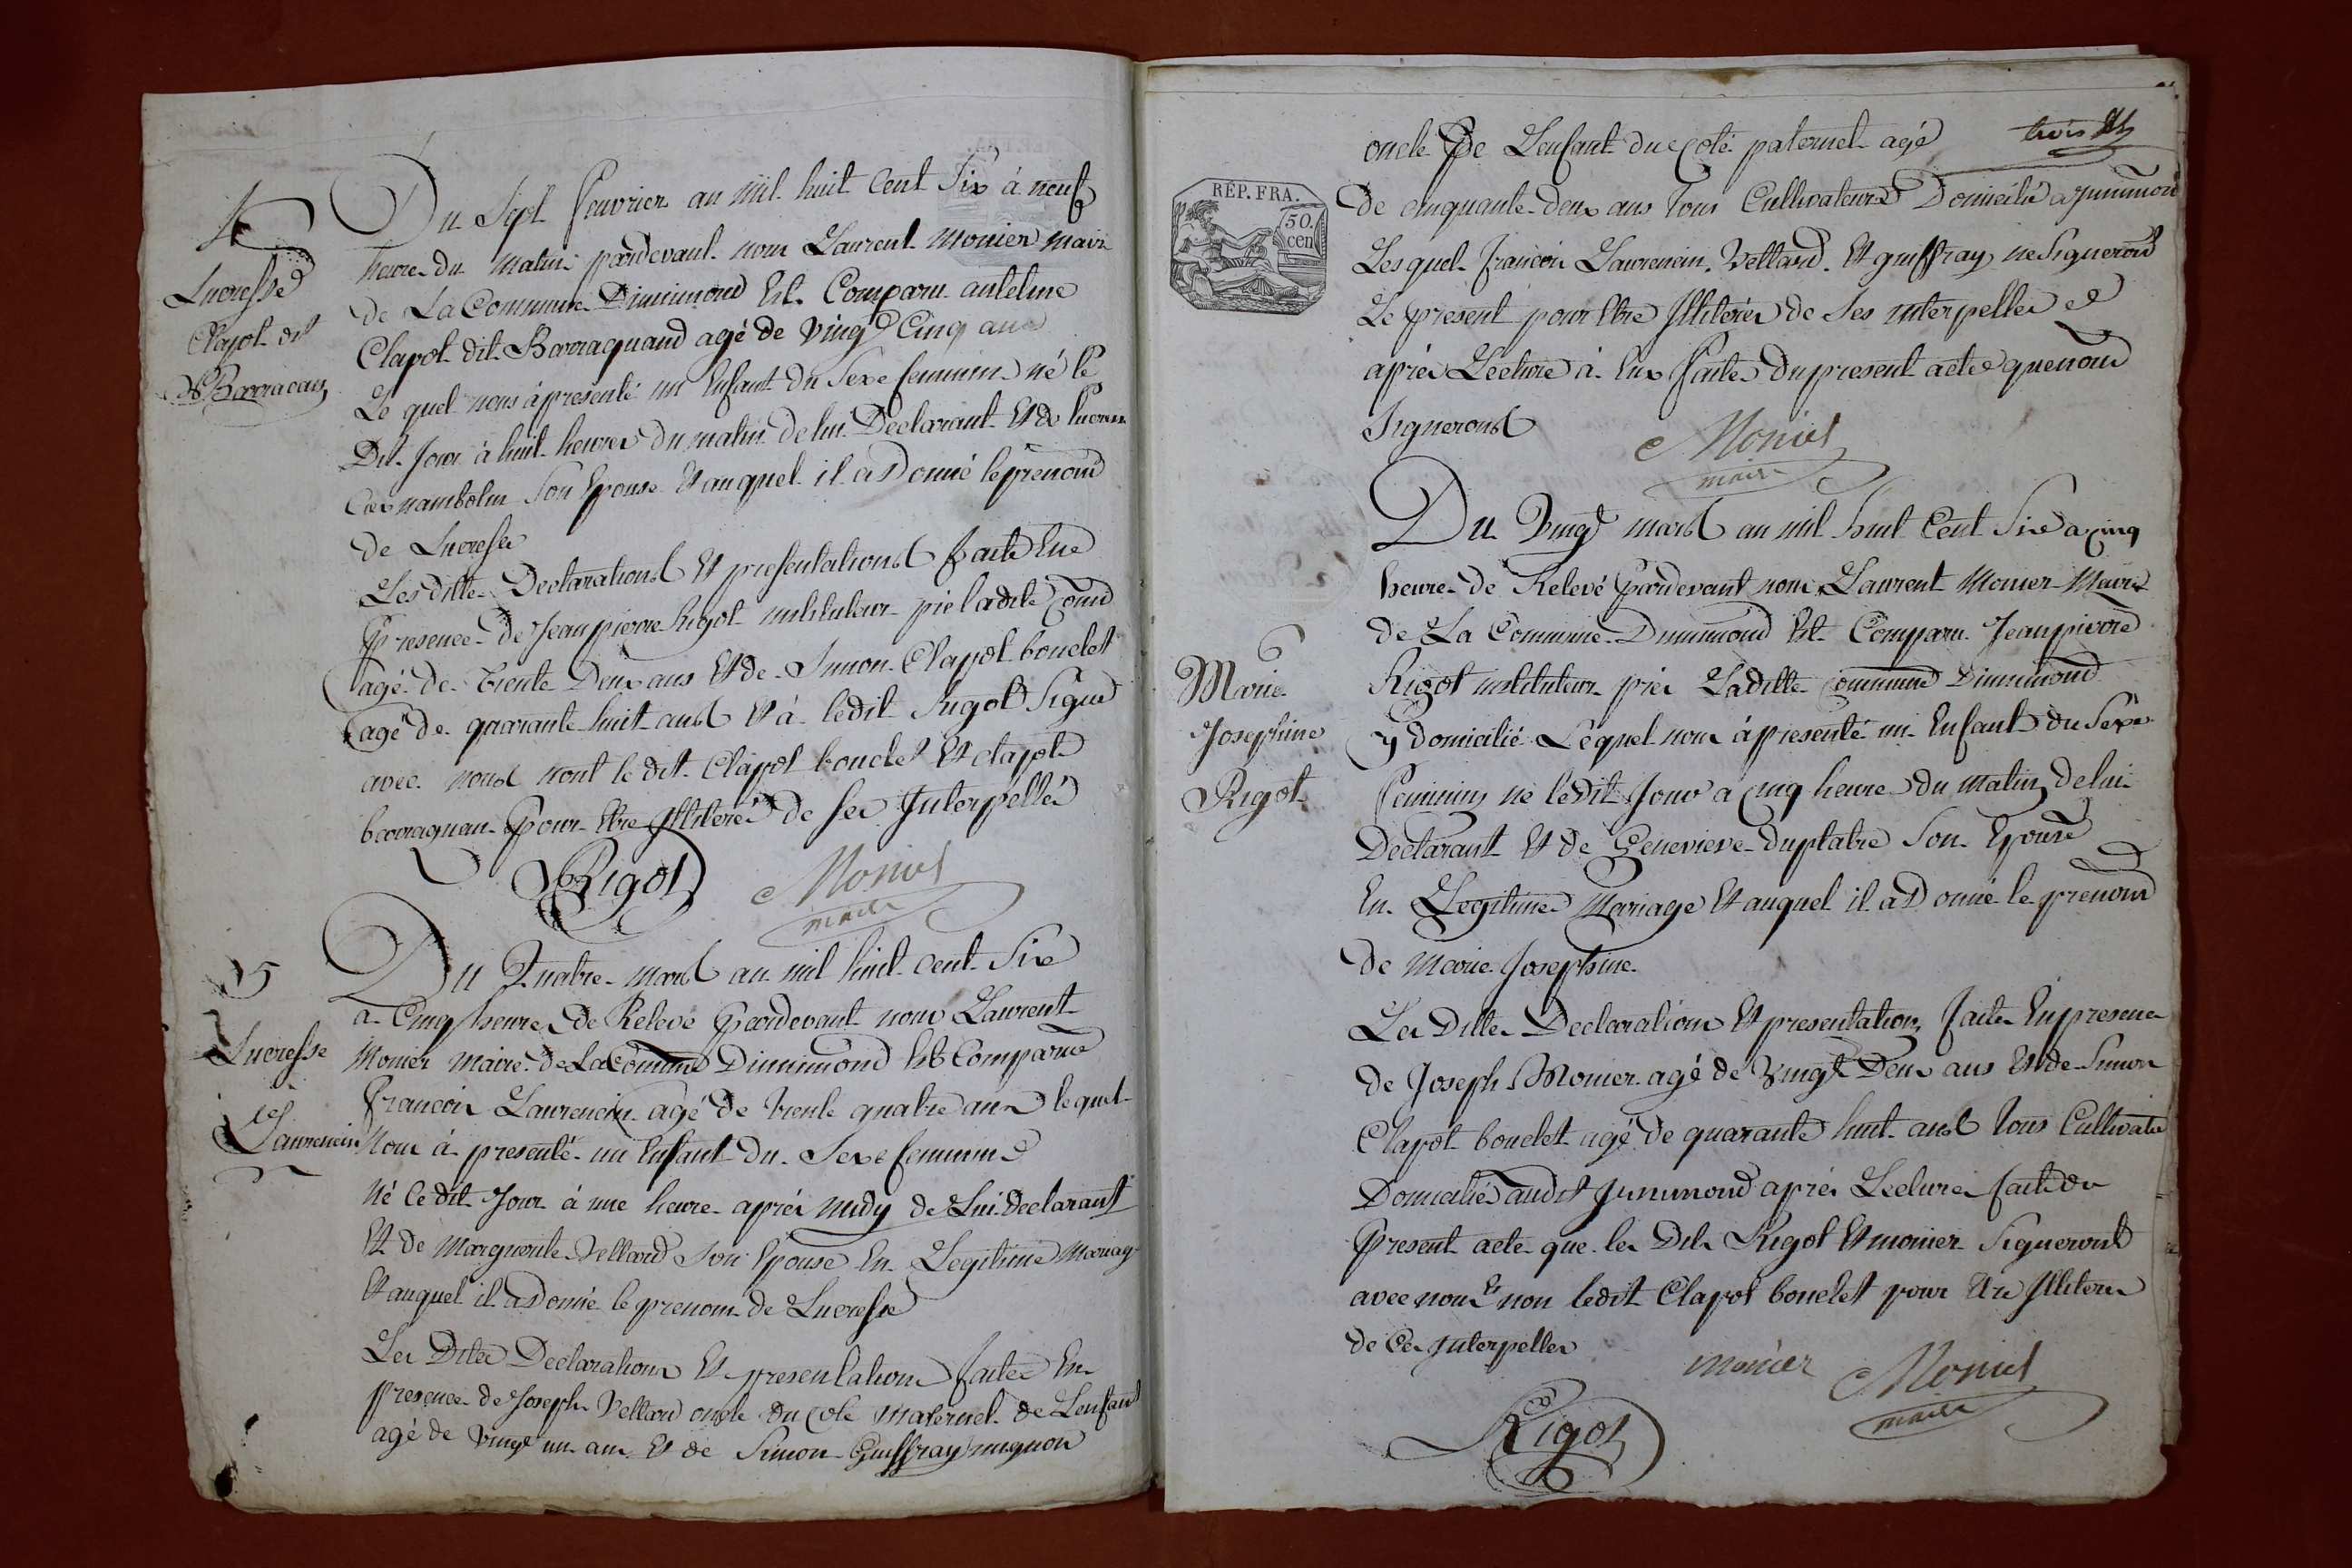 4
Lucresse
Clapot dit
Barracan
Du Sept fevrier an mil huit Cent Six à neuf
heure du matin pardevant nous Laurent Monier Maire
de La Commune Dimimond Est Comparu antelme
Clapot dit Barraquand agé de Vingt Cinq ans
Le quel nous àpresenté un Enfant du Sexe feminin né le
Dit Jour à huit heures du matin de lui Declarant Et de
Son Epouse Et auquel il a Donné leprenom
de Lucresse
Lesditte Declarations Et presentations faite En
Presence de Jeanpierre Rigot instituteur prè ladite
agé de Trente Deux ans Et de Simon Clapot bouclet
agé de quarante huit ans Et à ledit Rigot Signé
avec nous nont le dit Clapot bouclet Et clapot
barraquan Pour Etre Illiteré de ser Interpellés
Rigot Monier
maire
5
Lucresse
Laurencin
Du Quatre mars an mil huit cent Six
a Cinq heures de Relevé Pardevant nous Laurent
Monier Maire de La Commune Dimimond Est Comparue
francois Laurencin agé de trente quatre ans lequel
nous à presenté un Enfant du Sexe feminin
né ledit Jour à une heure aprés midy de Lui Declarant
Et de Marguerite Vellard Son Epouse En Legitime Mariag
Et auquel il a Donné le prenom de Lucresse
Les Dites Declarations Et presentations faites En
presence de Joseph Vellard oncle du cote maternel de Lenfant
agé de vingt un ans Et de Simon Guiffray mignon
trois
oncle De Lenfant du coté paternel agé
de cinquante deux ans Tous Cultivateurs Domicilié a Jmimond
Lesquel francois Laurencin, Vellard, Et guiffray ne Signeront
Le present pour Etre Illiteréz de Ses interpelles
aprés Lecture à Eux faites du present acte que nous
Signerons
Monier
maire
RÉP. FRA.
50.
cen
6
Marie
Josephine
Rigot
Du Vingt mars an mil huit Cent Six a cinq
heure de Relevé Pardevant nous Laurent Monier Maire
de La Commune Dimimond Est Comparu Jeanpierre
Rigot instituteur prés Laditte Commune Dimimond
y domicilié Lequel nous àpresenté un Enfant du Sexe
feminin né ledit Jour a cinq heure du matin de lui
Declarant Et de Genevieve Duplatre Son Epouse
En Legitime Mariage Et auquel il a Donné le prenom
de Marie Josephine
Les Dittes Declarations Et presentation faites En presence
de Joseph Monier agé de Vingt Deux ans Et de Simon
Clapot bouclet agé de quarante huit ans Tous Cultivate
Domiciliés audit Jmimond aprés Lecture fait du
Present acte que les Dits Rigot Et monier Signeront
avec nous Et non ledit Clapot bouclet pour Etre Illiteres
de Ces Interpelles
monier Monier
maire
Rigot